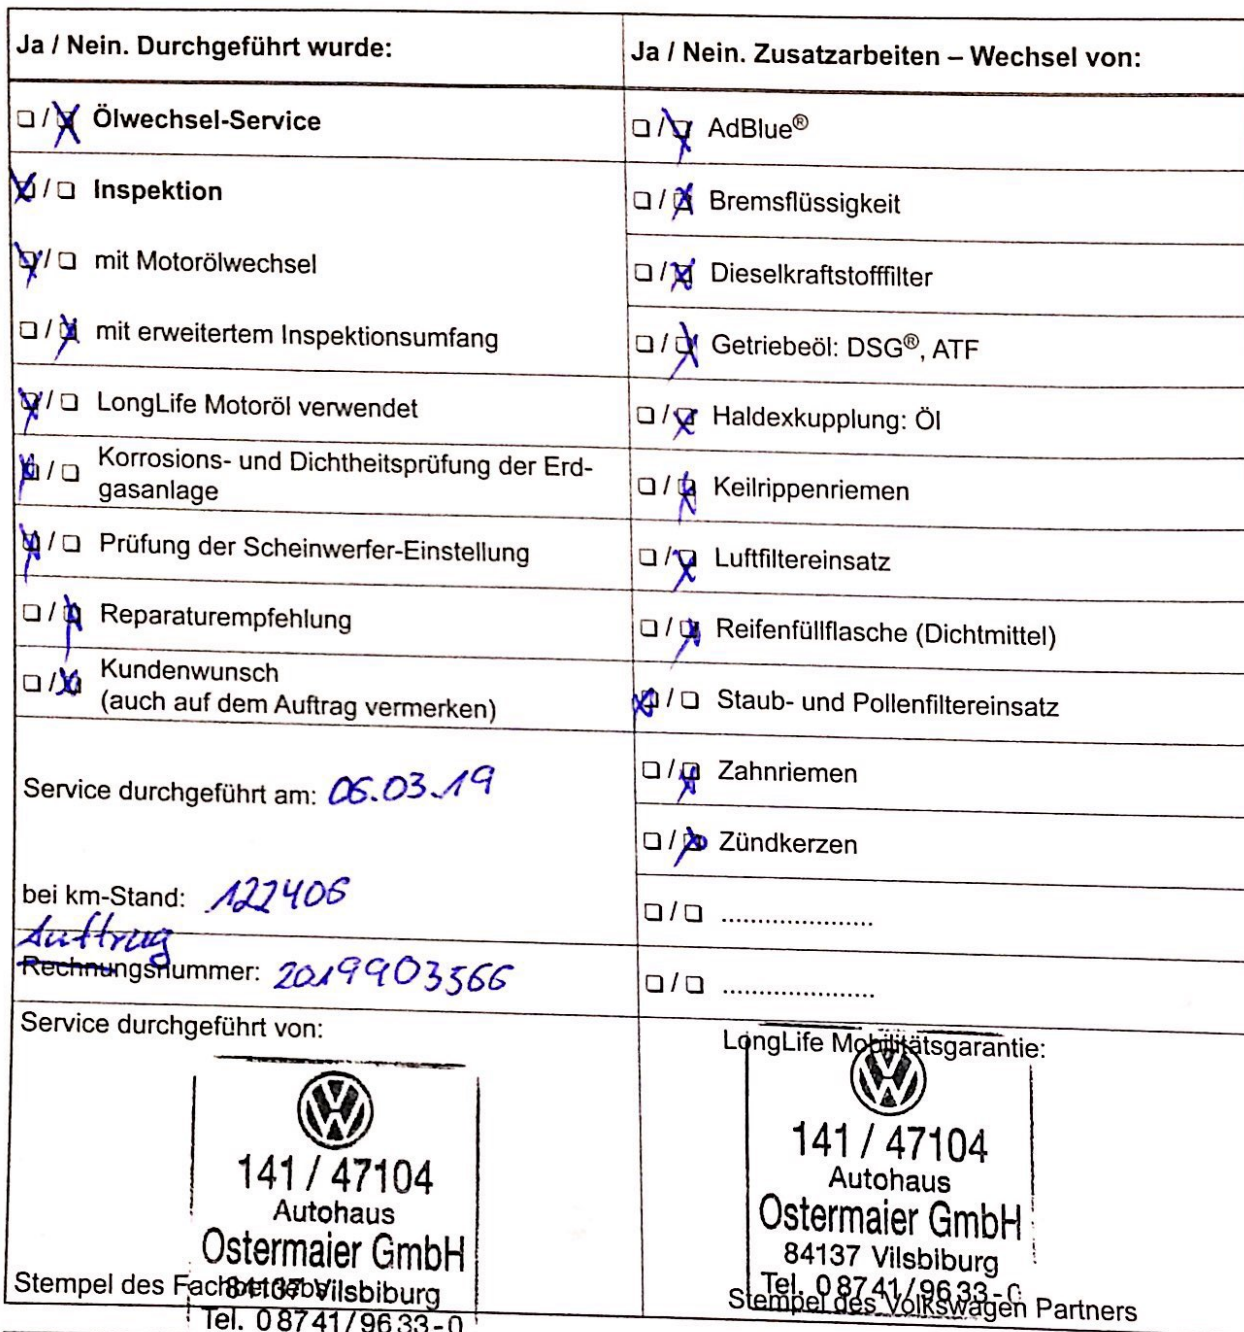 Ja / Nein. Durchgeführt wurde:
☐ / ☒ Ölwechsel-Service
☒ / ☐ Inspektion
☒ / ☐ mit Motorölwechsel
☐ / ☒ mit erweitertem Inspektionsumfang
☒ / ☐ LongLife Motoröl verwendet
☒ / ☐ Korrosions- und Dichtheitsprüfung der Erd-
gasanlage
☒ / ☐ Prüfung der Scheinwerfer-Einstellung
☐ / ☒ Reparaturempfehlung
☐ / ☒ Kundenwunsch
(auch auf dem Auftrag vermerken)
Service durchgeführt am: 06.03.19
bei km-Stand: 122406
Auftrag
Rechnungsnummer: 2019903566
Service durchgeführt von:
141 / 47104
Autohaus
Ostermaier GmbH
84137 Vilsbiburg
Stempel des Fachbetriebs
Tel. 0 87 41 / 96 33 - 0
Ja / Nein. Zusatzarbeiten – Wechsel von:
☐ / ☒ AdBlue®
☐ / ☒ Bremsflüssigkeit
☐ / ☒ Dieselkraftstofffilter
☐ / ☒ Getriebeöl: DSG®, ATF
☐ / ☒ Haldexkupplung: Öl
☐ / ☒ Keilrippenriemen
☐ / ☒ Luftfiltereinsatz
☐ / ☒ Reifenfüllflasche (Dichtmittel)
☒ / ☐ Staub- und Pollenfiltereinsatz
☐ / ☒ Zahnriemen
☐ / ☒ Zündkerzen
☐ / ☐ .....................
☐ / ☐ .....................
LongLife Mobilitätsgarantie:
141 / 47104
Autohaus
Ostermaier GmbH
84137 Vilsbiburg
Tel. 0 87 41 / 96 33 - 0
Stempel des Volkswagen Partners